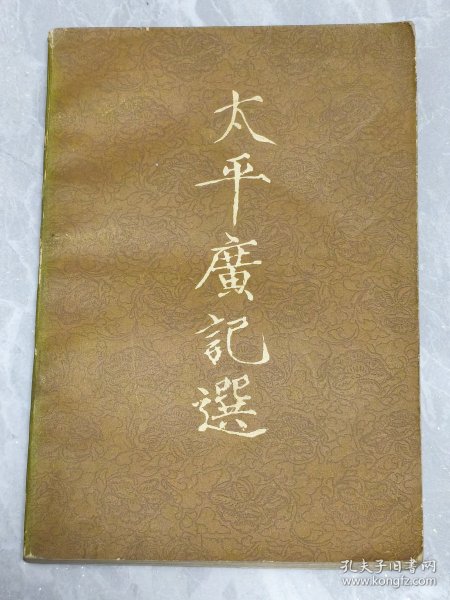 太平廣記選
孔夫子旧书网
www.kongfz.com